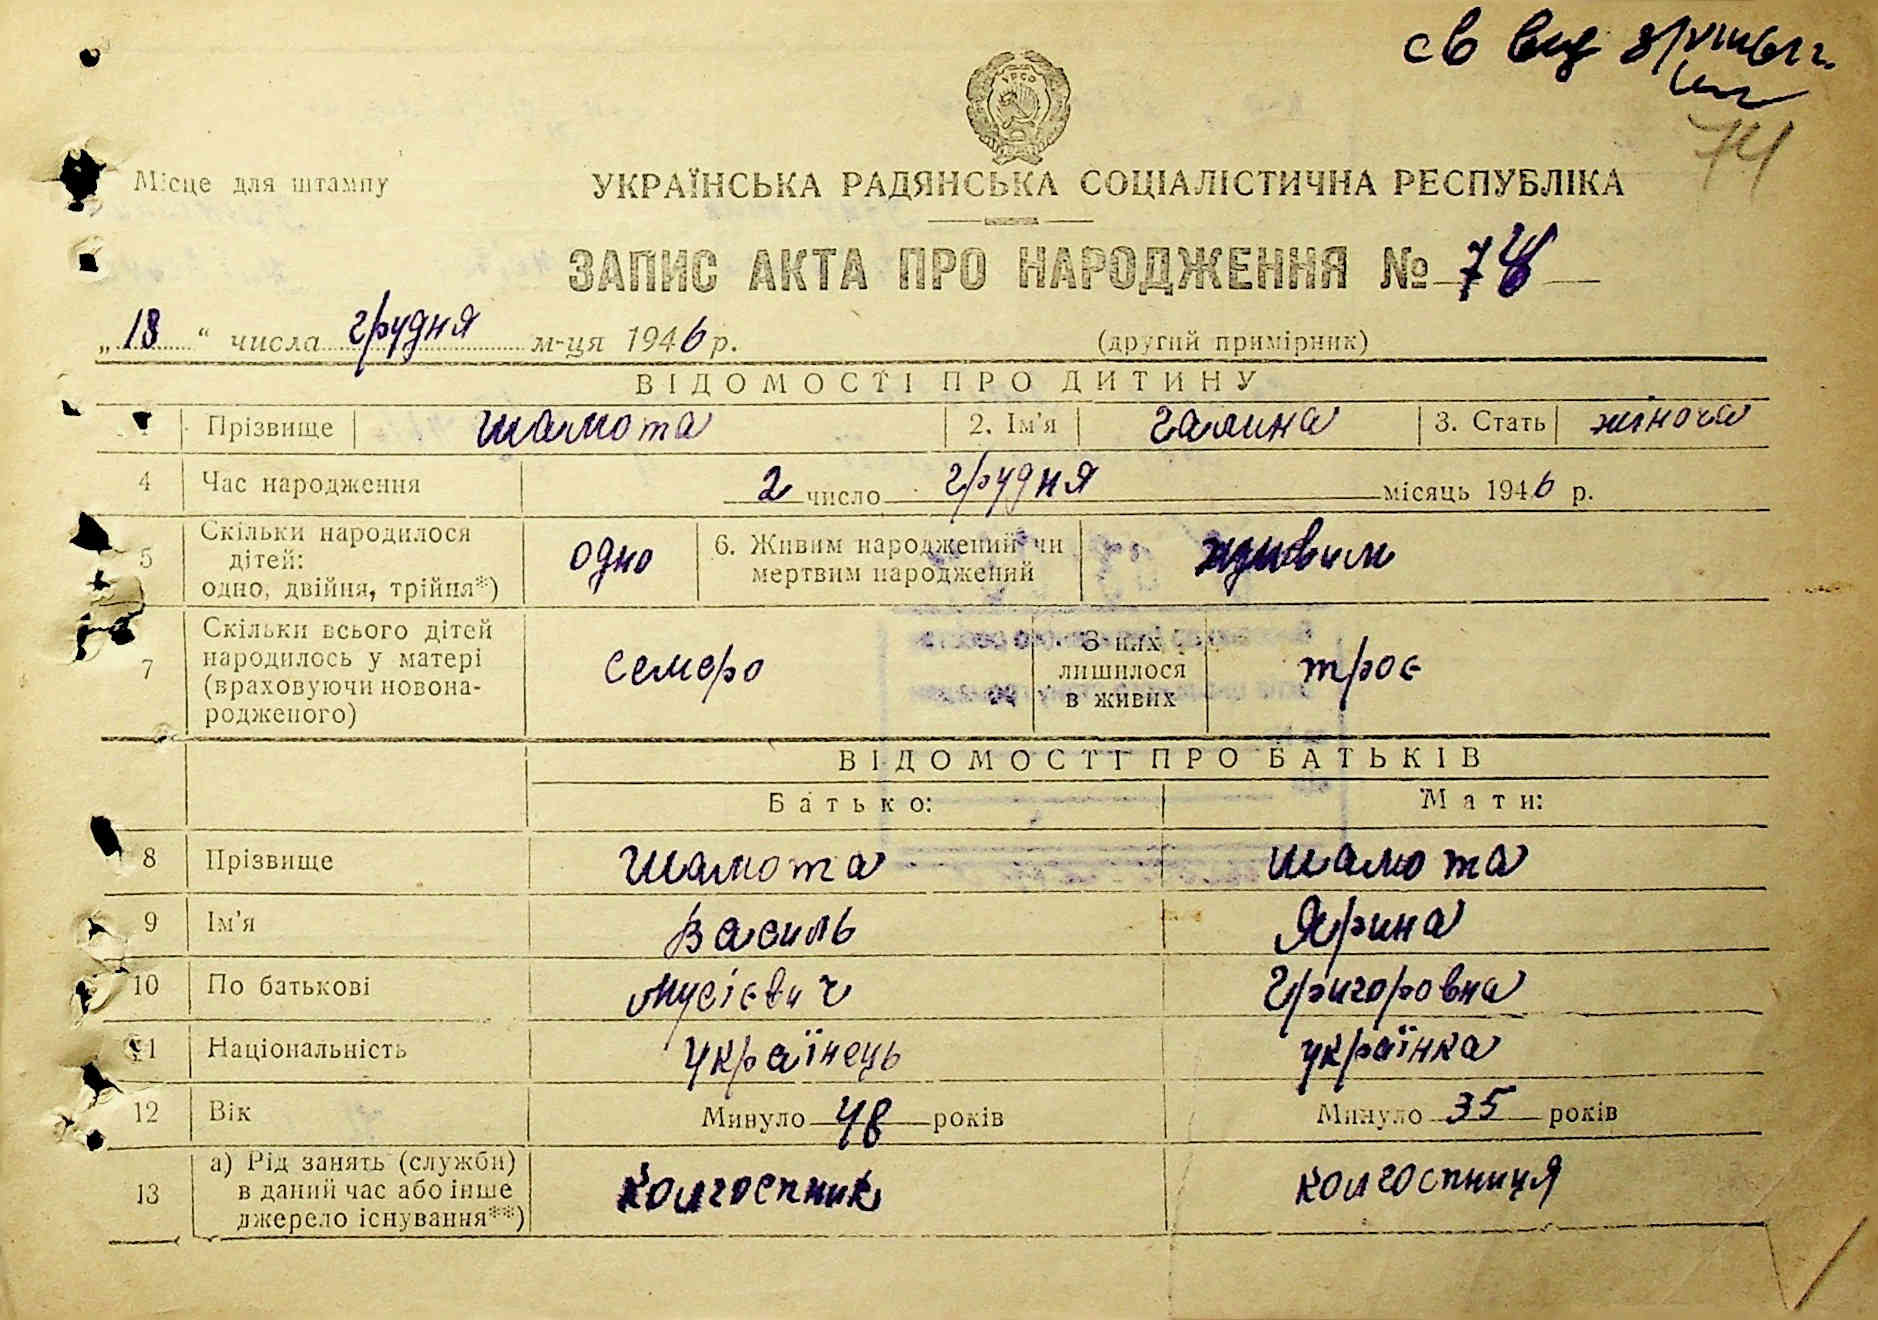 св вид
74
УРСР
Місце для штампу
УКРАЇНСЬКА РАДЯНСЬКА СОЦІАЛІСТИЧНА РЕСПУБЛІКА
ЗАПИС АКТА ПРО НАРОДЖЕННЯ №
„18“ числа грудня м-ця 1946 р.
(другий примірник)
ВІДОМОСТІ ПРО ДИТИНУ
1 Прізвище Шамота 2. Ім'я Галина 3. Стать жіноча
4 Час народження 2 число грудня місяць 1946 р.
5 Скільки народилося дітей: одно, двійня, трійня*) одно 6. Живим народжений чи мертвим народжений живим
7 Скільки всього дітей народилось у матері (враховуючи новонародженого) семеро З них лишилося в живих троє
ВІДОМОСТІ ПРО БАТЬКІВ
Батько: Мати:
8 Прізвище Шамота Шамота
9 Ім'я Василь Ярина
10 По батькові Мусієвич Григоровна
11 Національність українець українка
12 Вік Минуло 48 років Минуло 35 років
13 а) Рід занять (служби) в даний час або інше джерело існування**) колгоспник колгоспниця